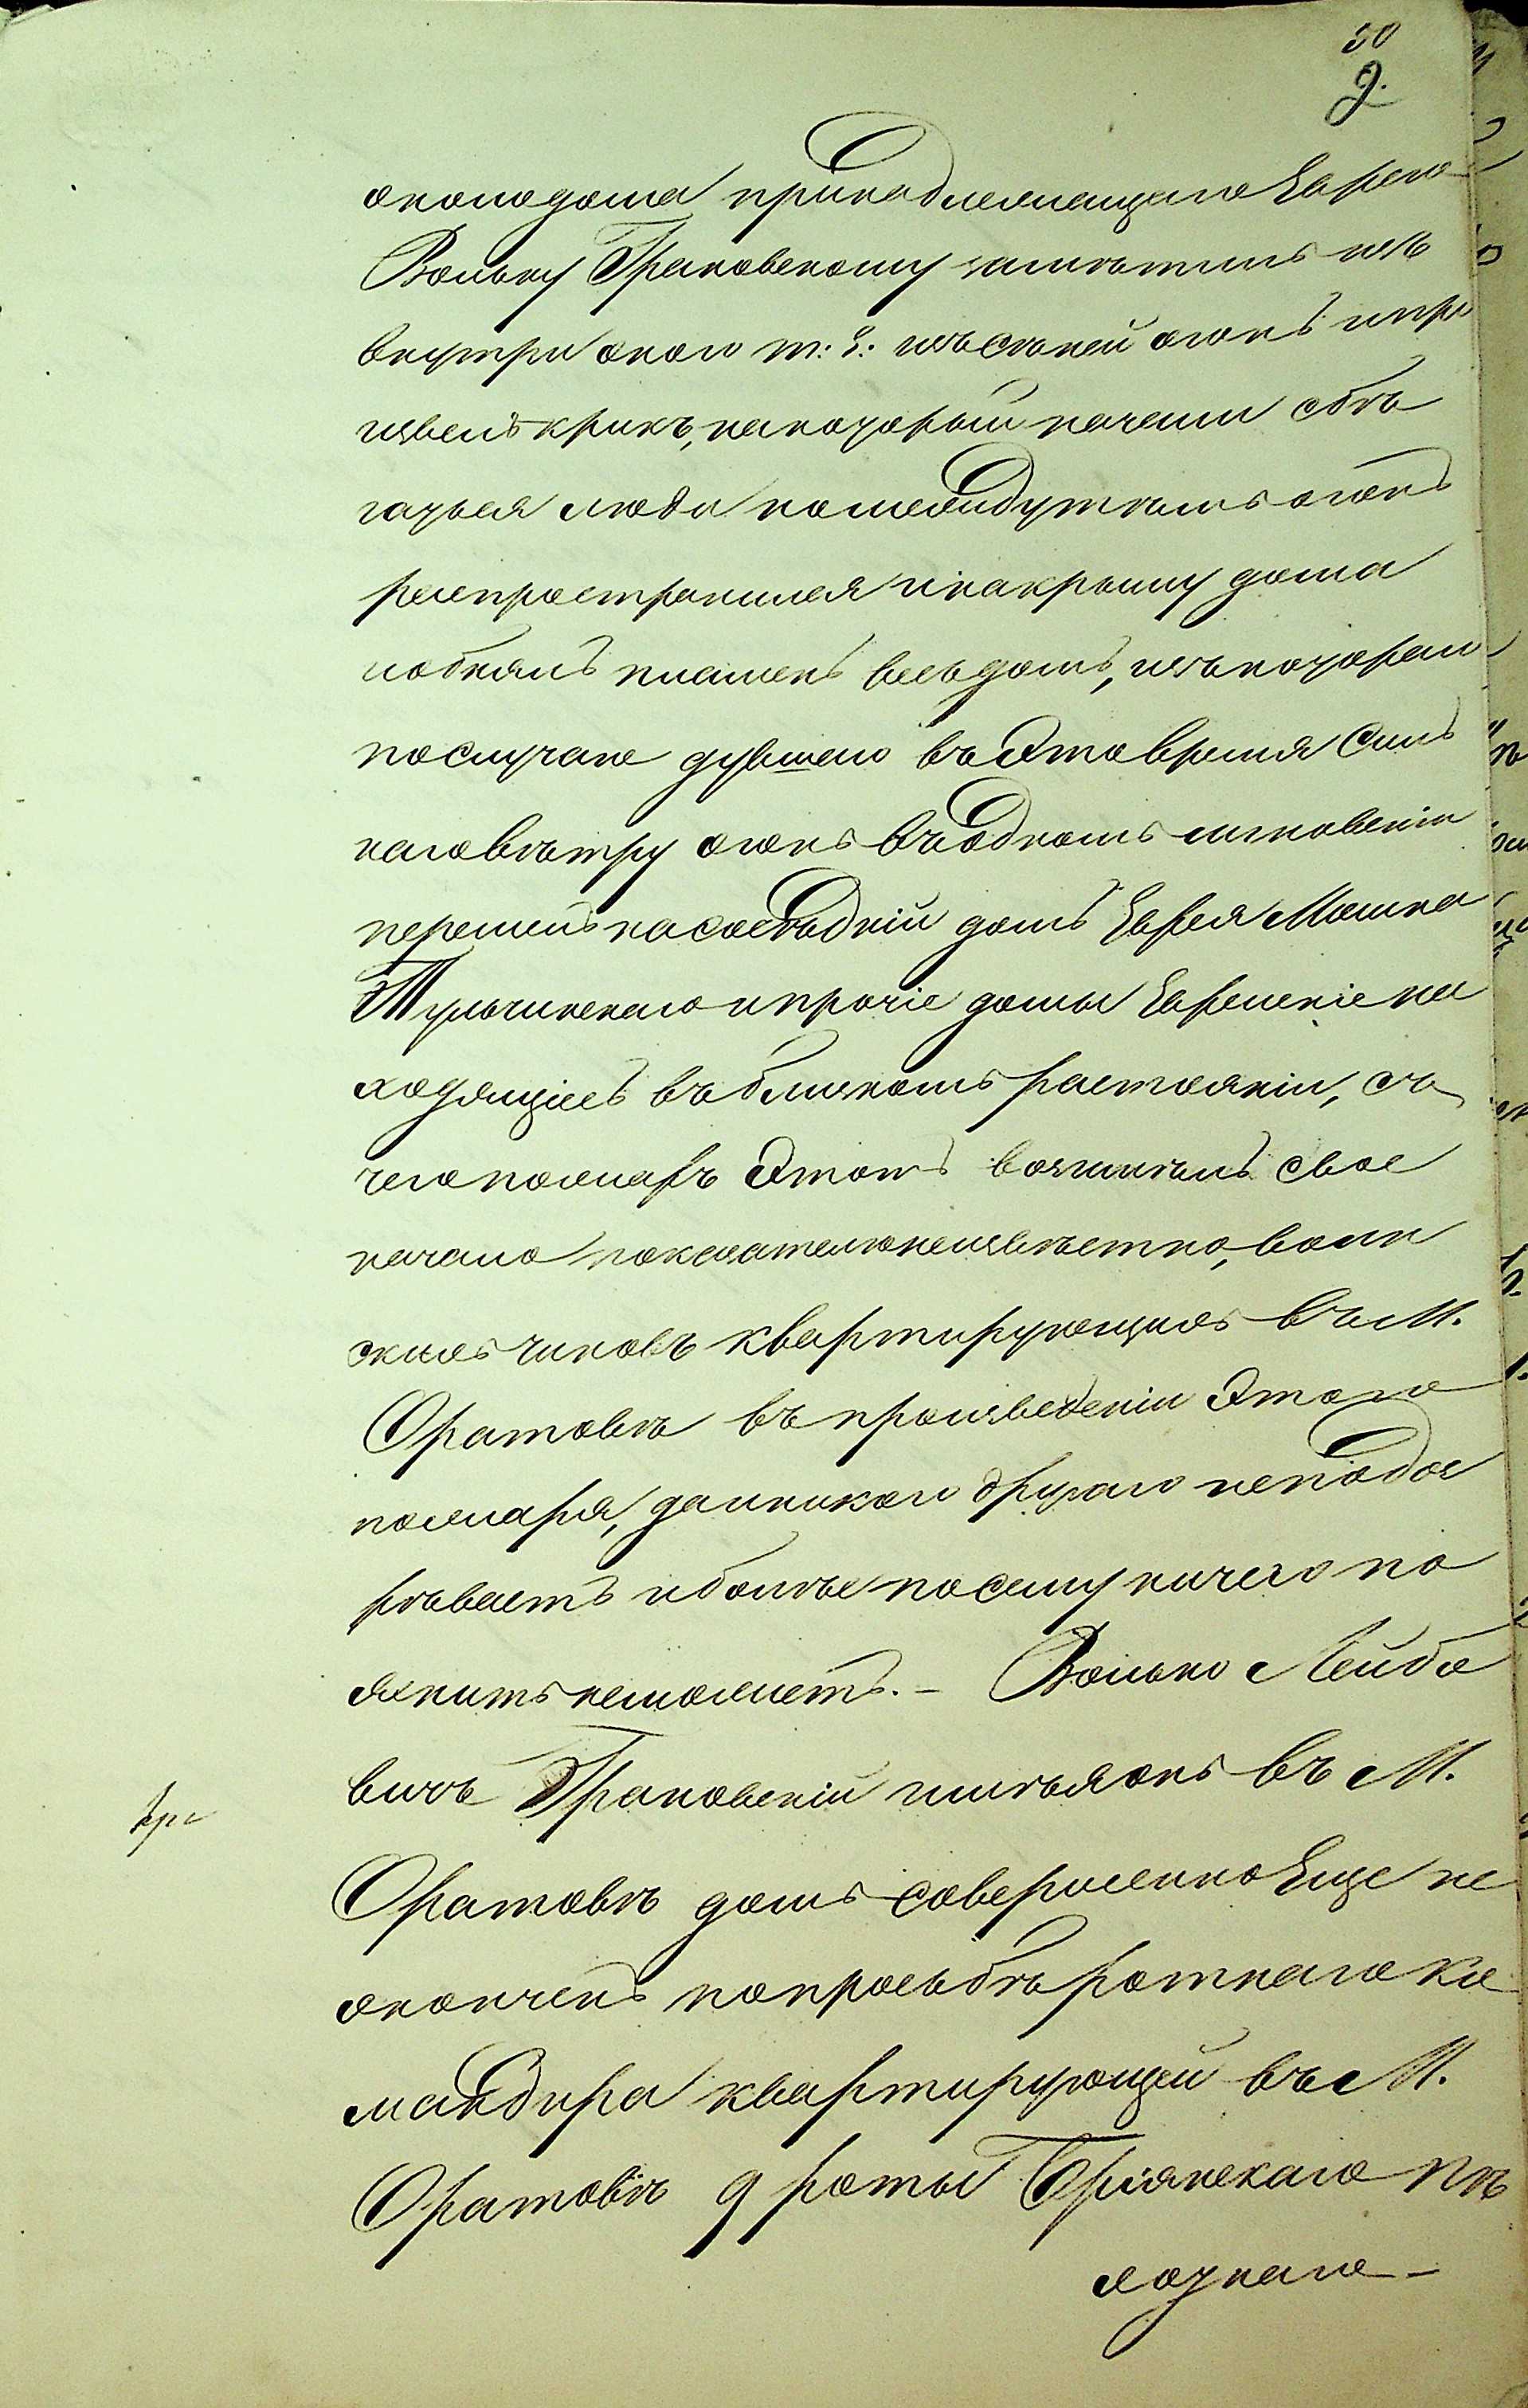 50
9.
около дома принадлежащаго Еврею
Волько Грановскому заметилъ изъ
внутри оного т: е: изъ сѣней огонь и про
извелъ крикъ, на который начали сбѣ
гаться люди но между тѣмъ огонь
распространился и на крышу дома
и обнялъ пламенъ весь домъ, изъ котораго
по случаю дувшего въ это время силь
наго вѣтру огонь въ одномъ мгновеніи
перешелъ на сосѣдній домъ Еврея Мошка
Тульчинскаго и прочіе домы Еврейскіе на
ходящіесъ въ близкомъ растояніи, съ
чего пожаръ этотъ возымѣлъ свое
начало показателю неизвѣстно, воин
скихъ чиновъ квартирующихъ въ М.
Оратовѣ въ произведеніи этого
пожара, да и никого другаго неподоз
рѣваетъ и болѣе по сему ничего по
яснить неможетъ. – Волько Лейбо
вичъ Грановскій имѣя онъ въ М.
Оратовѣ домъ совершенно Еще не
оконченъ по просьбѣ ротнаго ко
мандира квартирующей въ М.
Оратовѣ 9 роты Брянскаго пѣ
хотнаго –